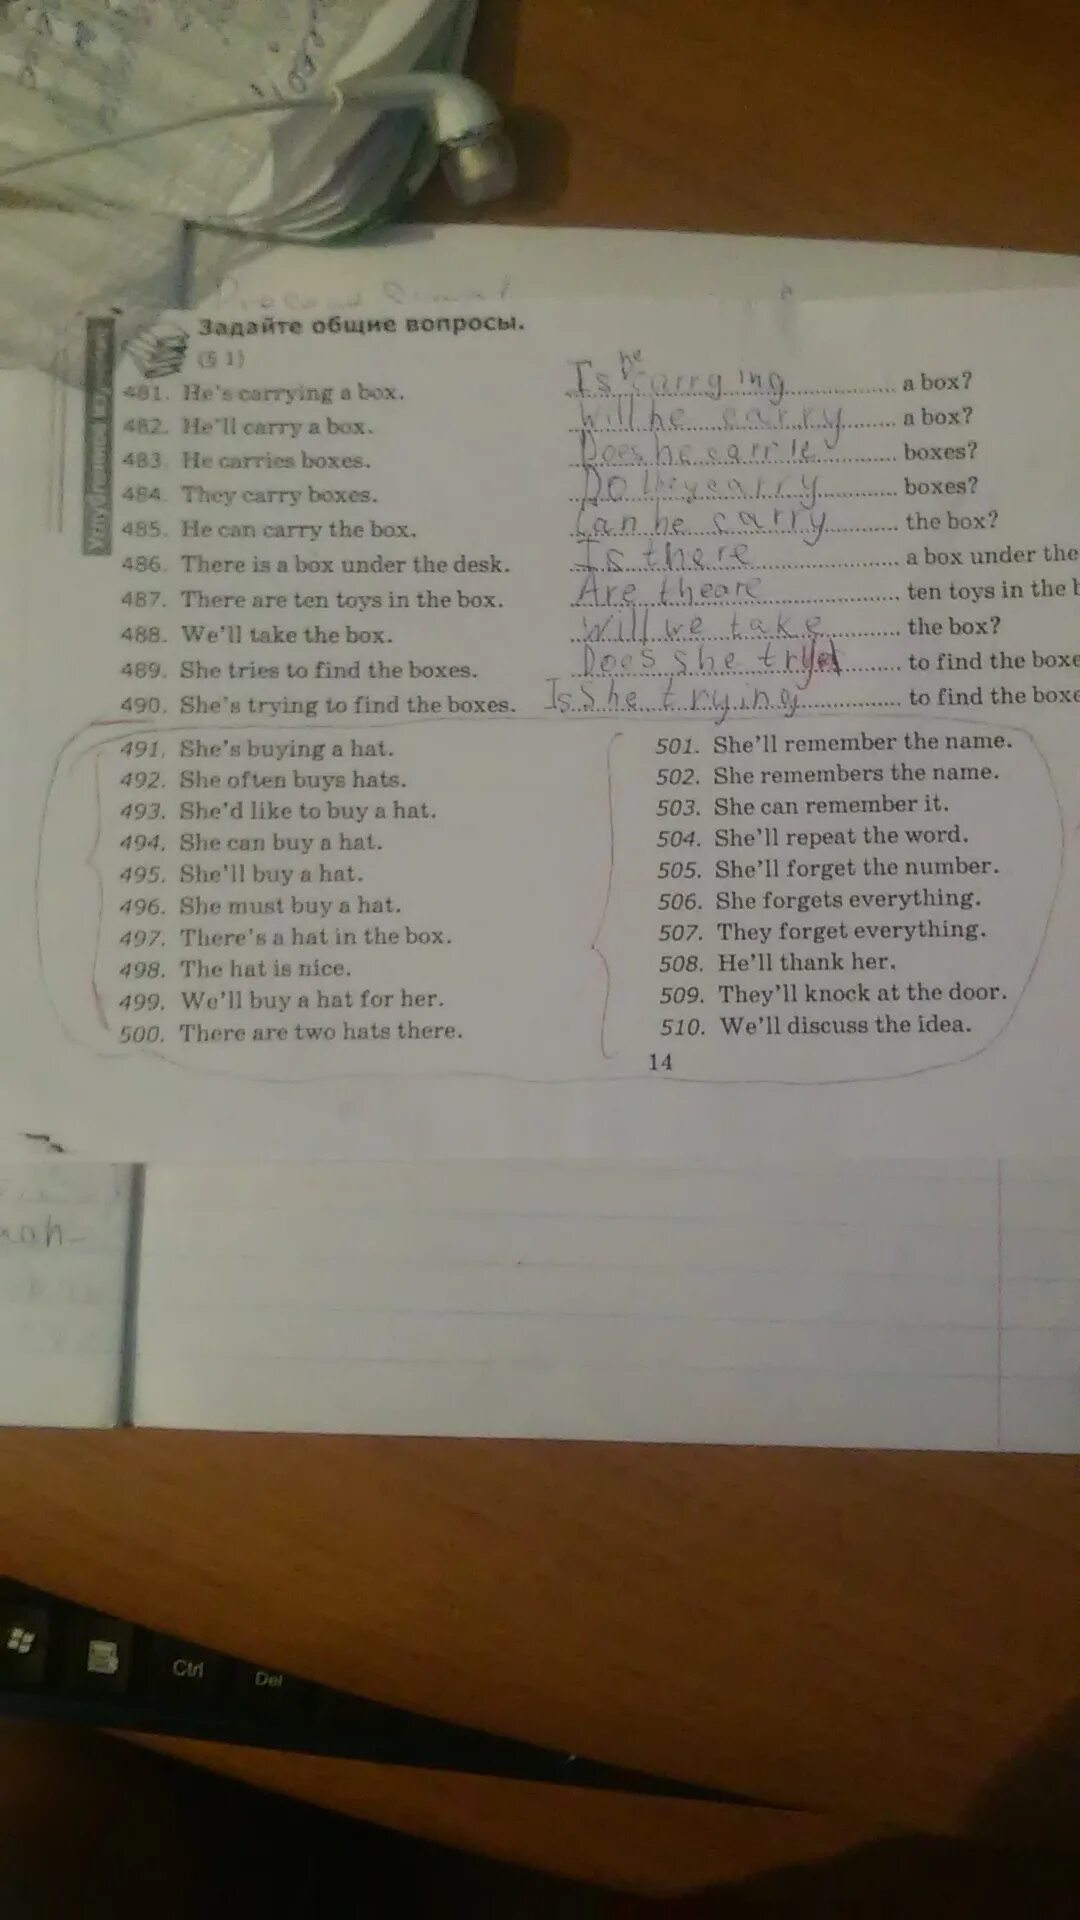 Задайте общие вопросы.
(§ 1)
481. He's carrying a box. Is he carrying a box?
482. He'll carry a box. Will he carry a box?
483. He carries boxes. Does he carrie boxes?
484. They carry boxes. Do they carry boxes?
485. He can carry the box. Can he carry the box?
486. There is a box under the desk. Is there a box under the
487. There are ten toys in the box. Are theare ten toys in the b
488. We'll take the box. Will we take the box?
489. She tries to find the boxes. Does she to find the boxe
490. She's trying to find the boxes. Is She trying to find the boxe
491. She's buying a hat.
492. She often buys hats.
493. She'd like to buy a hat.
494. She can buy a hat.
495. She'll buy a hat.
496. She must buy a hat.
497. There's a hat in the box.
498. The hat is nice.
499. We'll buy a hat for her.
500. There are two hats there.
501. She'll remember the name.
502. She remembers the name.
503. She can remember it.
504. She'll repeat the word.
505. She'll forget the number.
506. She forgets everything.
507. They forget everything.
508. He'll thank her.
509. They'll knock at the door.
510. We'll discuss the idea.
14
Ctrl
Del